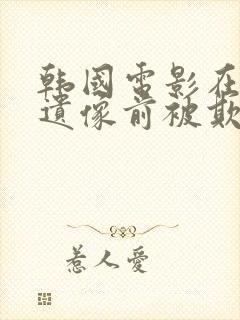 韩国电影在
遗像前被欺
惹人愛